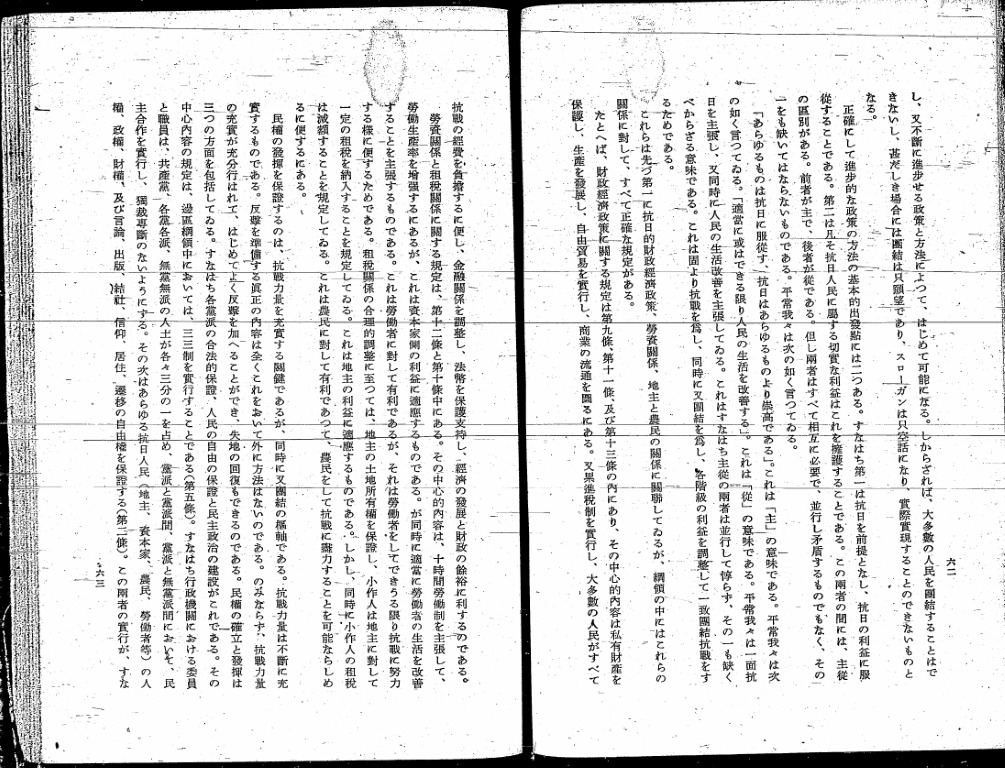 六二
し、又不斷に進步せる政策と方法によつて、はじめて可能になる。しからざれば、大多數の人民を團結することはで
きないし、甚だしき場合には團結は只願望であり、スローガンは只空話になり、實際實現することのできないものと
なる。
正確にして進步的な政策の方法の基本的出發點には二つある。すなはち第一は抗日を前提となし、抗日の利益に服
從することである。第二は凡そ抗日人民に屬する切實な利益はこれを擁護することである。この兩者の間には、主從
の區別がある。前者が主で、後者が從である。但し兩者はすべて相互に必要で、並行し矛盾するものでもなく、その
一をも缺いてはならないものである。平常我々は次の如く言つてゐる。
「あらゆるものは抗日に服從す、抗日はあらゆるものより崇高である」。これは「主」の意味である。平常我々は次
の如く言つてゐる。「適當に或はできる限り人民の生活を改善する」。これは「從」の意味である。平常我々は一面抗
日を主張し、又同時に人民の生活改善を主張してゐる。これはすなはち主從の兩者は並行して悖らず、その一も缺く
べからざる意味である。これは固より抗戰を爲し、同時に又團結を爲し、各階級の利益を調整して一致團結抗戰をす
るためである。
これらは先づ第一に抗日的財政經濟政策、勞資關係、地主と農民の關係に關聯してゐるが、綱領の中にはこれらの
關係に對して、すべて正確な規定がある。
たとへば、財政經濟政策に關する規定は第九條、第十一條、及び第十三條の內にあり、その中心的內容は私有財產を
保護し、生產を發展し、自由貿易を實行し、商業の流通を圖るにある。又累進稅制を實行し、大多數の人民がすべて
抗戰の經費を負擔するに便し、金融關係を調整し、法幣を保護支持し、經濟の發展と財政の餘裕に利するのである。
勞資關係と租稅關係に關する規定は、第十二條と第十條中にある。その中心的內容は、十時間勞働制を主張して、
勞働生產率を增强するにあるが、これは資本家側の利益に適應するものである。が同時に適當に勞働者の生活を改善
することを主張するものである。これは勞働者に對して有利であるが、それは勞働者をしてできうる限り抗戰に努力
する樣に便するためである。租稅關係の合理的調整に至つては、地主の土地所有權を保證し、小作人は地主に對して
一定の租稅を納入することを規定してゐる。これは地主の利益に適應するものである。しかし、同時に小作人の租稅
は減額することを規定してゐる。これは農民に對して有利であつて、農民をして抗戰に盡力することを可能ならしめ
るに便するにある。
民權の發揮を保證するのは、抗戰力量を充實する關健であるが、同時に又團結の樞軸である。抗戰力量は不斷に充
實するものである。反擊を準備する眞正の內容は全くこれをおいて外に方法はないのである。のみならず、抗戰力量
の充實が充分行はれて、はじめてよく反擊を加へることができ、失地の回復もできるのである。民權の確立と發揮は
三つの方面を包括してゐる。すなはち各黨派の合法的保證、人民の自由の保證と民主政治の建設がこれである。その
中心內容の規定は、邊區綱領中においては、三三制を實行することである(第五條)。すなはち行政機關における委員
と職員は、共產黨、各黨各派、無黨無派の人士が各々三分の一を占め、黨派と黨派間、黨派と無黨派間において、民
主合作を實行し、獨裁專斷のないようにする。その次はあらゆる抗日人民(地主、資本家、農民、勞働者等)の人
權、政權、財權、及び言論、出版、結社、信仰、居住、遷移の自由權を保證する(第二條)。この兩者の實行が、すな
六三